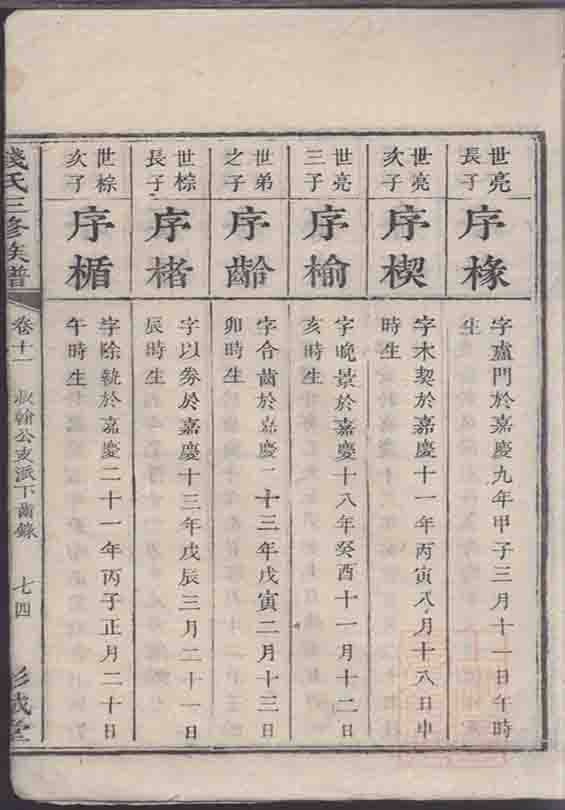 世亮
長子
序椽
字廬門於嘉慶九年甲子三月十一日午時
生
世亮
次子
序楔
字木契於嘉慶十一年丙寅八月十八日申
時生
世亮
三子
序榆
字晩景於嘉慶十八年癸酉十一月十二日
亥時生
世弟
之子
序齡
字合齒於嘉慶二十三年戊寅二月十三日
卯時生
世棕
長子
序楮
字以券於嘉慶十三年戊辰三月二十一日
辰時生
世棕
次子
序楯
字除銃於嘉慶二十一年丙子正月二十日
午時生
錢氏三修族譜
卷十一
叔翰公支派下齒錄
七四
彭城堂